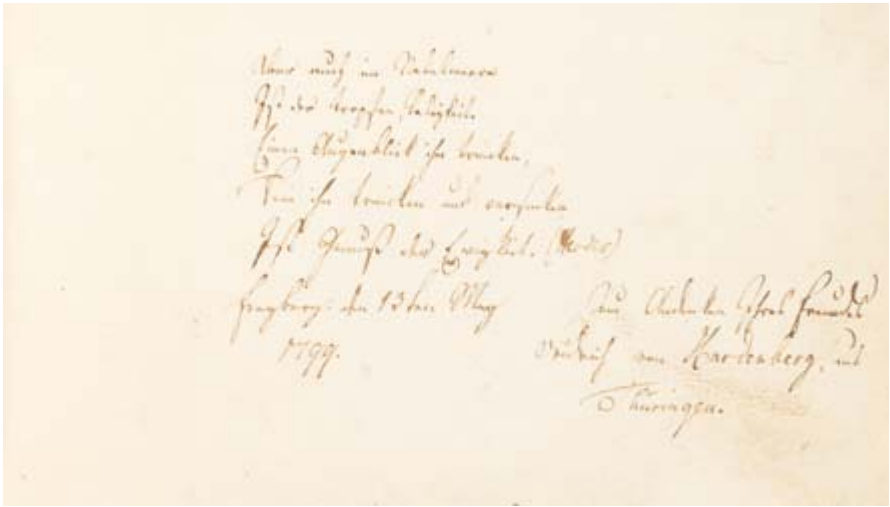 Aber auch im Nebelmeere
Ist der Tropfen Seligkeit.
Einen Augenblick ihn trinken,
Rein ihn trinken und versinken
Ist Genuß der Ewigkeit. (Herder)
Freyberg. den 13ten May
1799.
Zum Andenken Ihres Freundes
Friedrich von Hardenberg, aus
Thüringen.